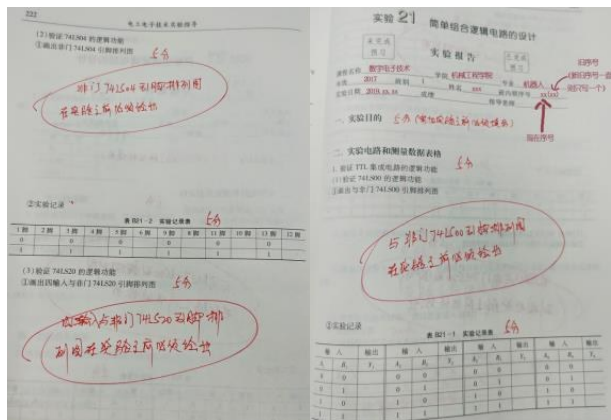 222
电工电子技术实验指导
(2)验证74LS04的逻辑功能
①画出非门74LS04引脚排列图 5分
非门74LS04引脚排列图
在实验之前必须绘出
②实验记录
表B21-2 实验记录表 5分
1脚 2脚 3脚 4脚 5脚 6脚 9脚 8脚 11脚 10脚 13脚 12脚
0 0 0 0 0 0
1 1 1 1 1 1
(3)验证74LS20的逻辑功能
①画出四输入与非门74LS20引脚排列图 5分
四输入与非门74LS20引脚排
列图在实验之前必须绘出
实验21 简单组合逻辑电路的设计
未完成
预习
实验报告
已完成
预习
课程名称 数字电子技术 学院 机械工程学院 专业 机器人
年级 2017 班别 1 姓名 xxx 班内顺序号 xx(xx)
实验日期 2019.xx.xx 成绩 指导老师
旧序号
(新旧序号一直
则只写一个)
现在序号
一、实验目的 5分(需在实验之前必须填写)
二、实验电路和测量数据表格
1. 验证TTL集成电路的逻辑功能 5分
(1)验证74LS00的逻辑功能
①画出与非门74LS00引脚排列图
与非门74LS00引脚排列图
在实验之前必须绘出
②实验记录
表B21-1 实验记录表 5分
输入 输出 输入 输出 输入 输出 输入 输出
0 0 0 0 0 0 0 0
0 1 0 1 0 1 0 1
1 0 1 0 1 0 1 0
1 1 1 1 1 1 1 1